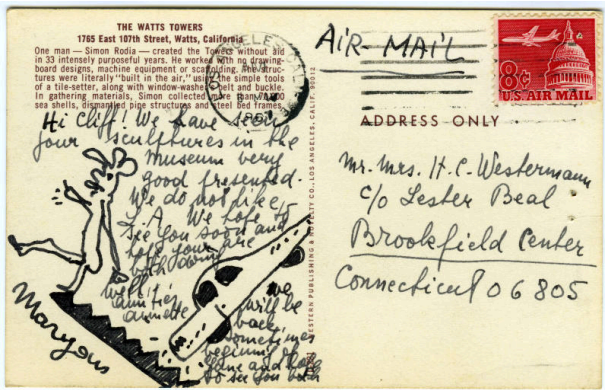 THE WATTS TOWERS
1765 East 107th Street, Watts, California
One man — Simon Rodia — created the Towers without aid
in 33 intensely purposeful years. He worked with no drawing-
board designs, machine equipment or scaffolding. The struc-
tures were literally "built in the air," using the simple tools
of a tile-setter, along with window-washer's belt and buckle.
In gathering materials, Simon collected more than
sea shells, dismantled pipe structures and steel bed frames.
Hi Cliff! We have seen
your sculptures in the
museum very
good presented.
We do not like
L.A. We hope to
see you soon and
you are
both
well,
annette
we
will be
back
sometimes
beginning of
June and hope
to see you both
Maryan
WESTERN PUBLISHING & NOVELTY CO., LOS ANGELES, CALIF. 90012
AIR-MAIL
8¢
U.S. AIR MAIL
ADDRESS ONLY
Mr. Mrs. H.C. Westermann
c/o Lester Beal
Brookfield Center
Connecticut 06805